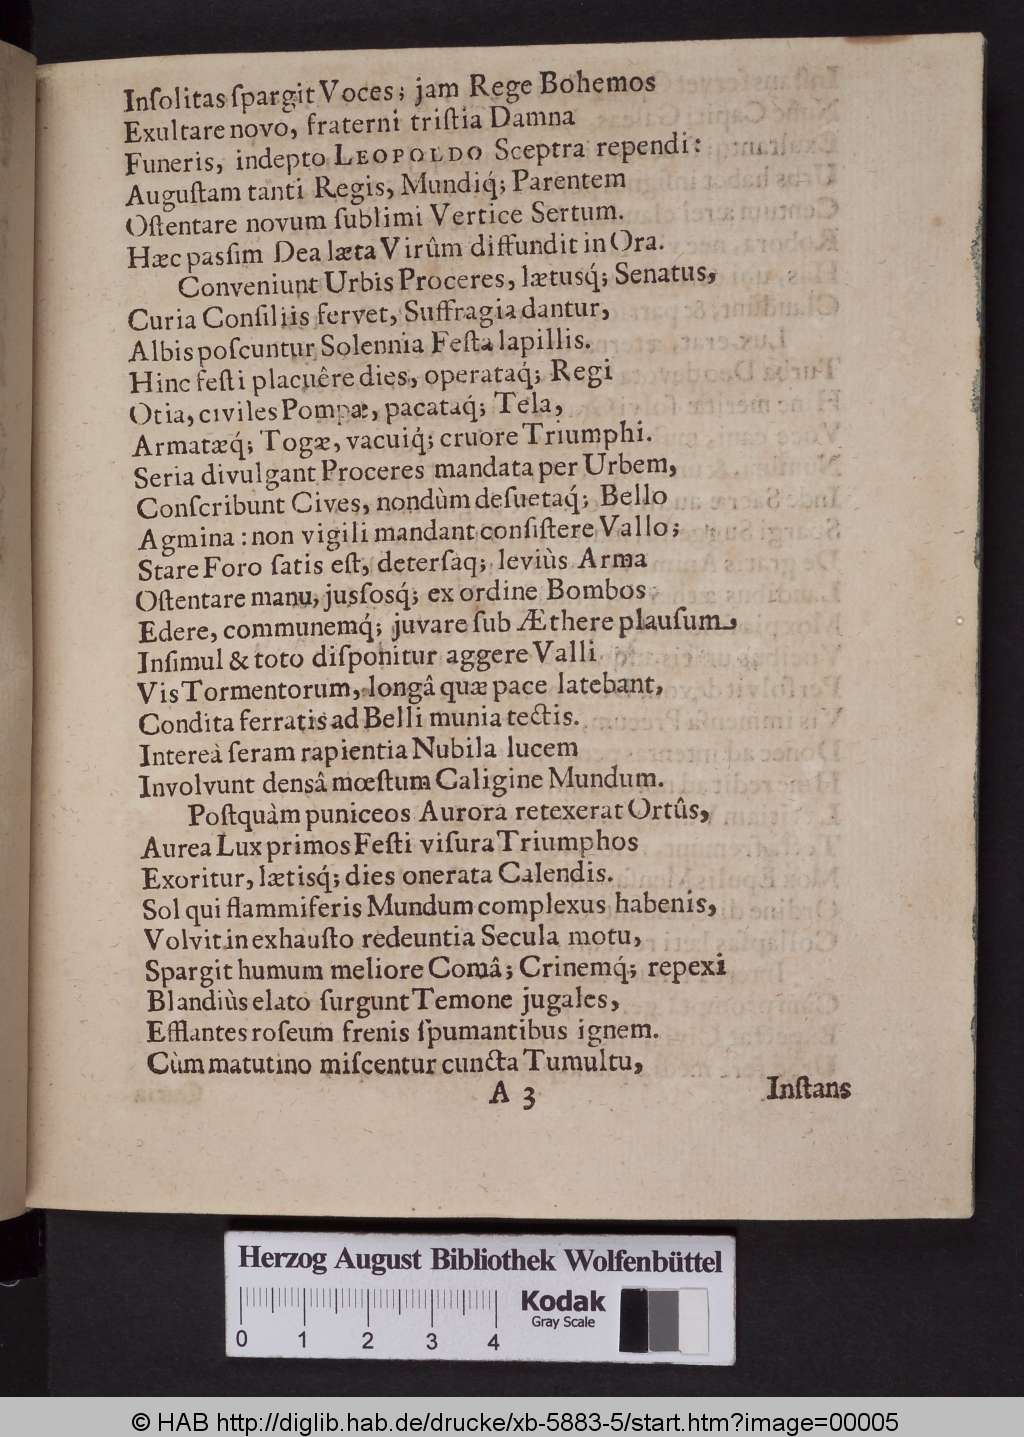 Inſolitas ſpargit Voces; jam Rege Bohemos
Exultare novo, fraterni triſtia Damna
Funeris, indepto LEOPOLDO Sceptra rependi:
Auguſtam tanti Regis, Mundiq́; Parentem
Oſtentare novum ſublimi Vertice Sertum.
Hæc paſsim Dea læta Virûm diffundit in Ora.
Conveniunt Urbis Proceres, lætusq́; Senatus,
Curia Conſiliis fervet, Suffragia dantur,
Albis poſcuntur Solennia Feſta lapillis.
Hinc feſti placuêre dies, operataq́; Regi
Otia, civiles Pompæ, pacataq́; Tela,
Armatæq́; Togæ, vacuiq́; cruore Triumphi.
Seria divulgant Proceres mandata per Urbem,
Conſcribunt Cives, nondùm deſuetaq́; Bello
Agmina: non vigili mandant conſiſtere Vallo;
Stare Foro ſatis eſt, deterſaq; leviùs Arma
Oſtentare manu, juſsosq́; ex ordine Bombos
Edere, communemq́; juvare ſub Æthere plauſum,
Inſimul & toto diſponitur aggere Valli
Vis Tormentorum, longâ quæ pace latebant,
Condita ferratis ad Belli munia tectis.
Intereà ſeram rapientia Nubila lucem
Involvunt densâ mœſtum Caligine Mundum.
Poſtquàm puniceos Aurora retexerat Ortûs,
Aurea Lux primos Feſti viſura Triumphos
Exoritur, lætisq́; dies onerata Calendis.
Sol qui flammiferis Mundum complexus habenis,
Volvit inexhauſto redeuntia Secula motu,
Spargit humum meliore Comâ; Crinemq́; repexi
Blandiùs elato ſurgunt Temone jugales,
Efflantes roſeum frenis ſpumantibus ignem.
Cùm matutino miſcentur cuncta Tumultu,
A 3 Inſtans
Herzog August Bibliothek Wolfenbüttel
0 1 2 3 4
Kodak
Gray Scale
© HAB http://diglib.hab.de/drucke/xb-5883-5/start.htm?image=00005